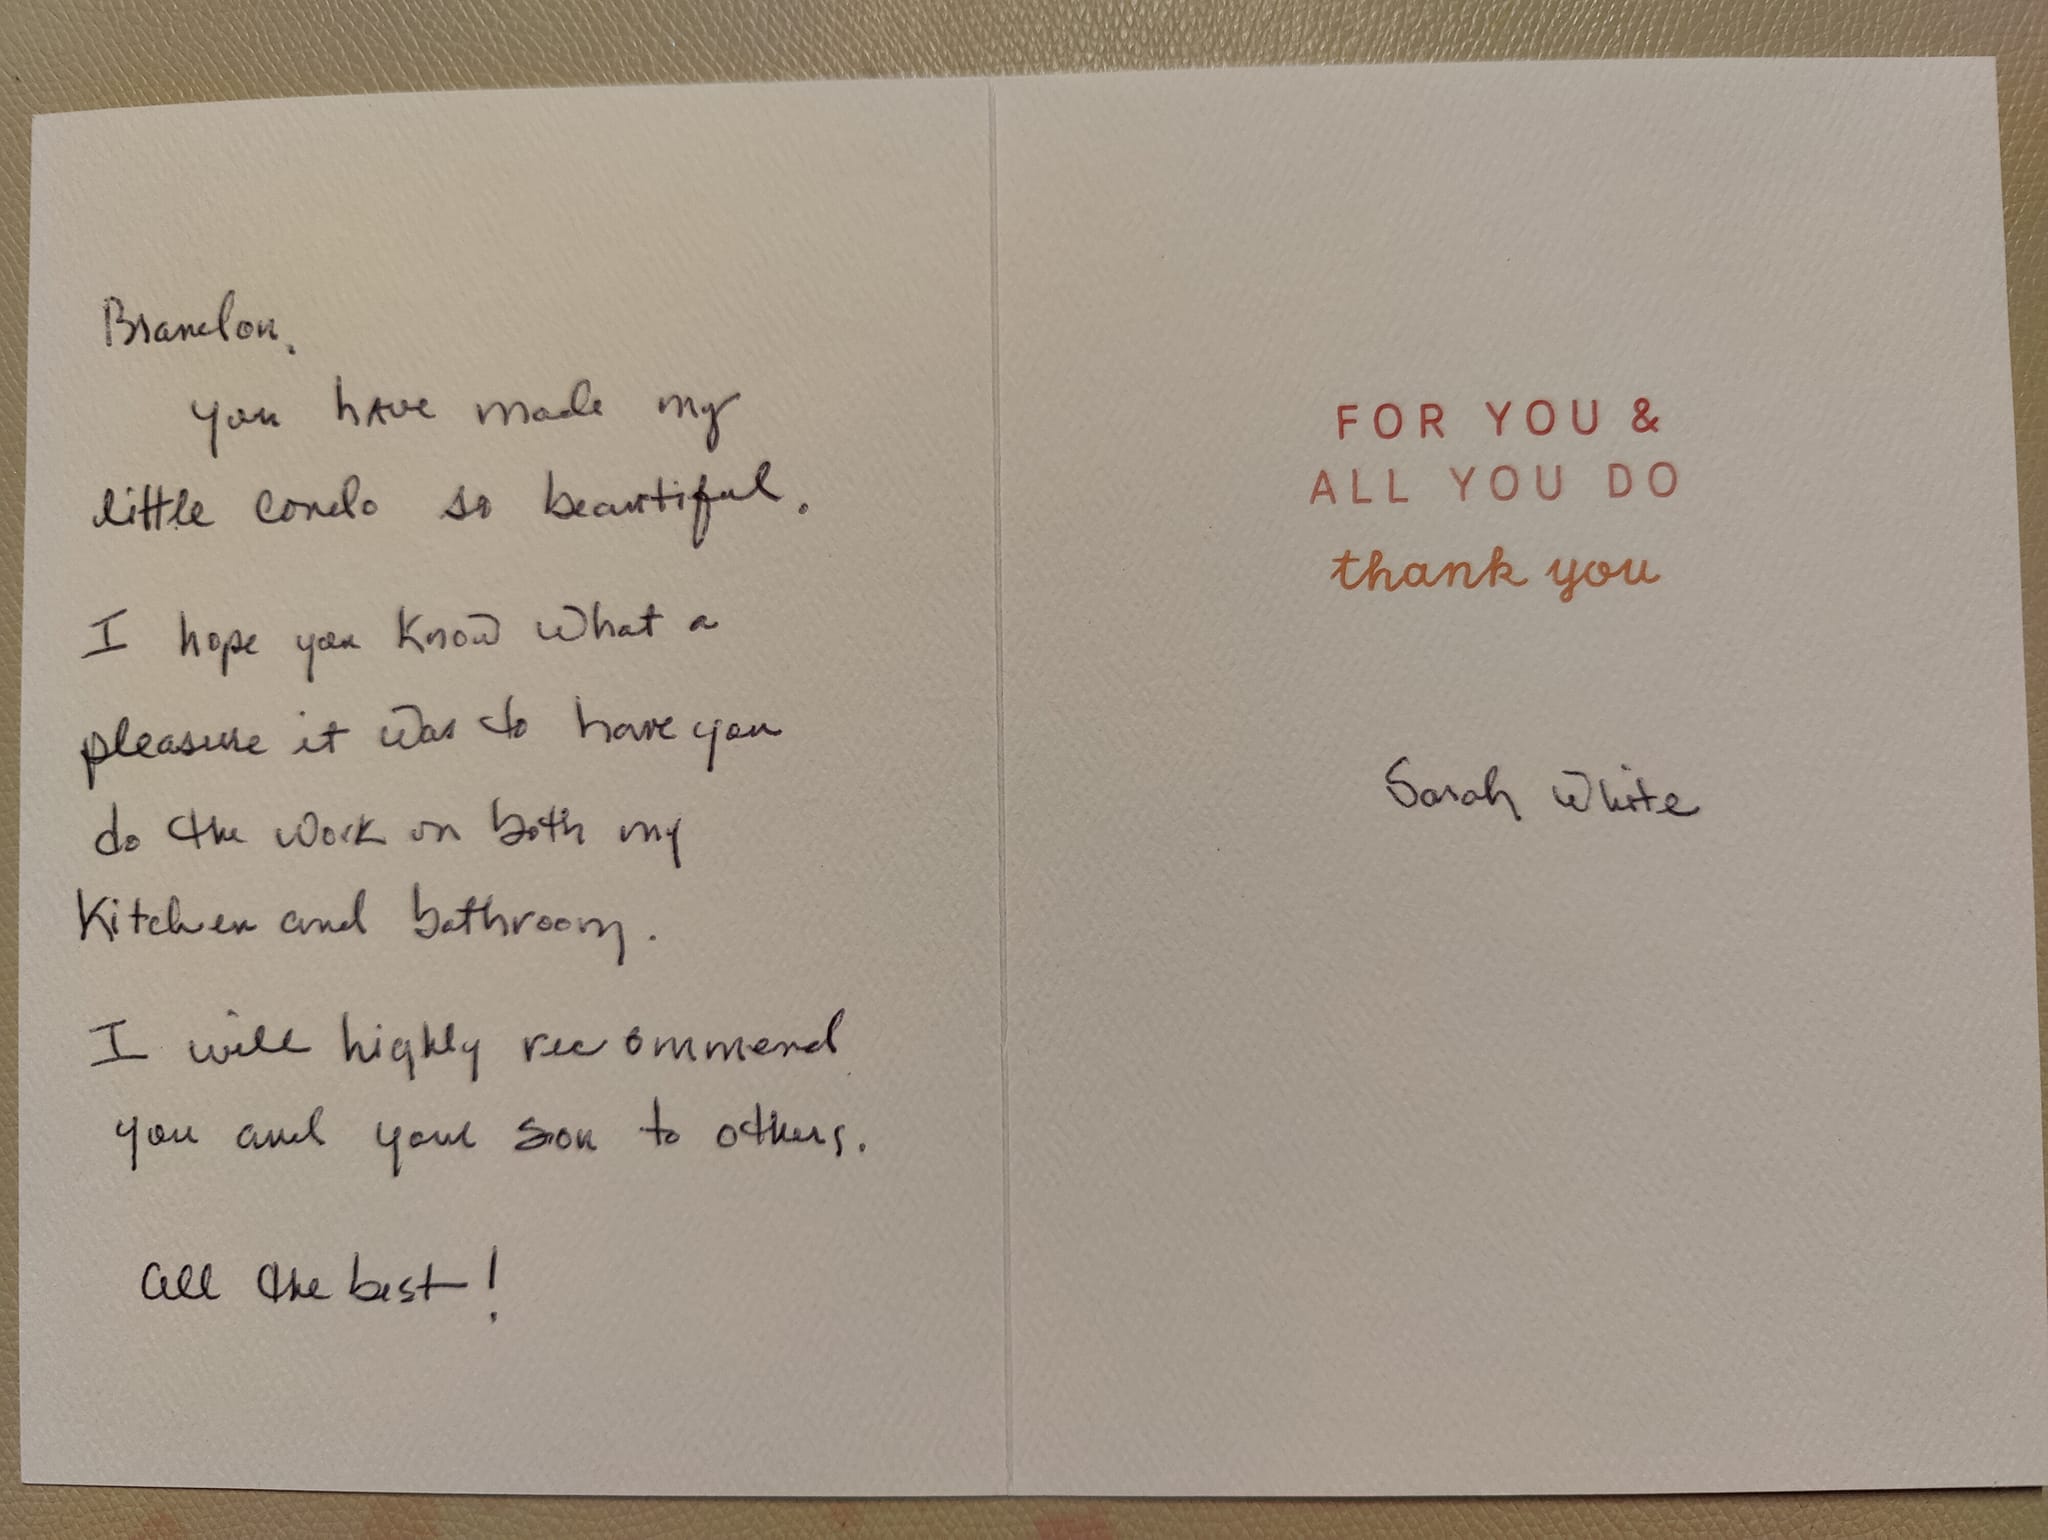 Brandon,
you have made my
little condo so beautiful.
I hope you know what a
pleasure it was to have you
do the work on both my
kitchen and bathroom.
I will highly recommend
you and your son to others.
all the best!
FOR YOU &
ALL YOU DO
thank you
Sarah White